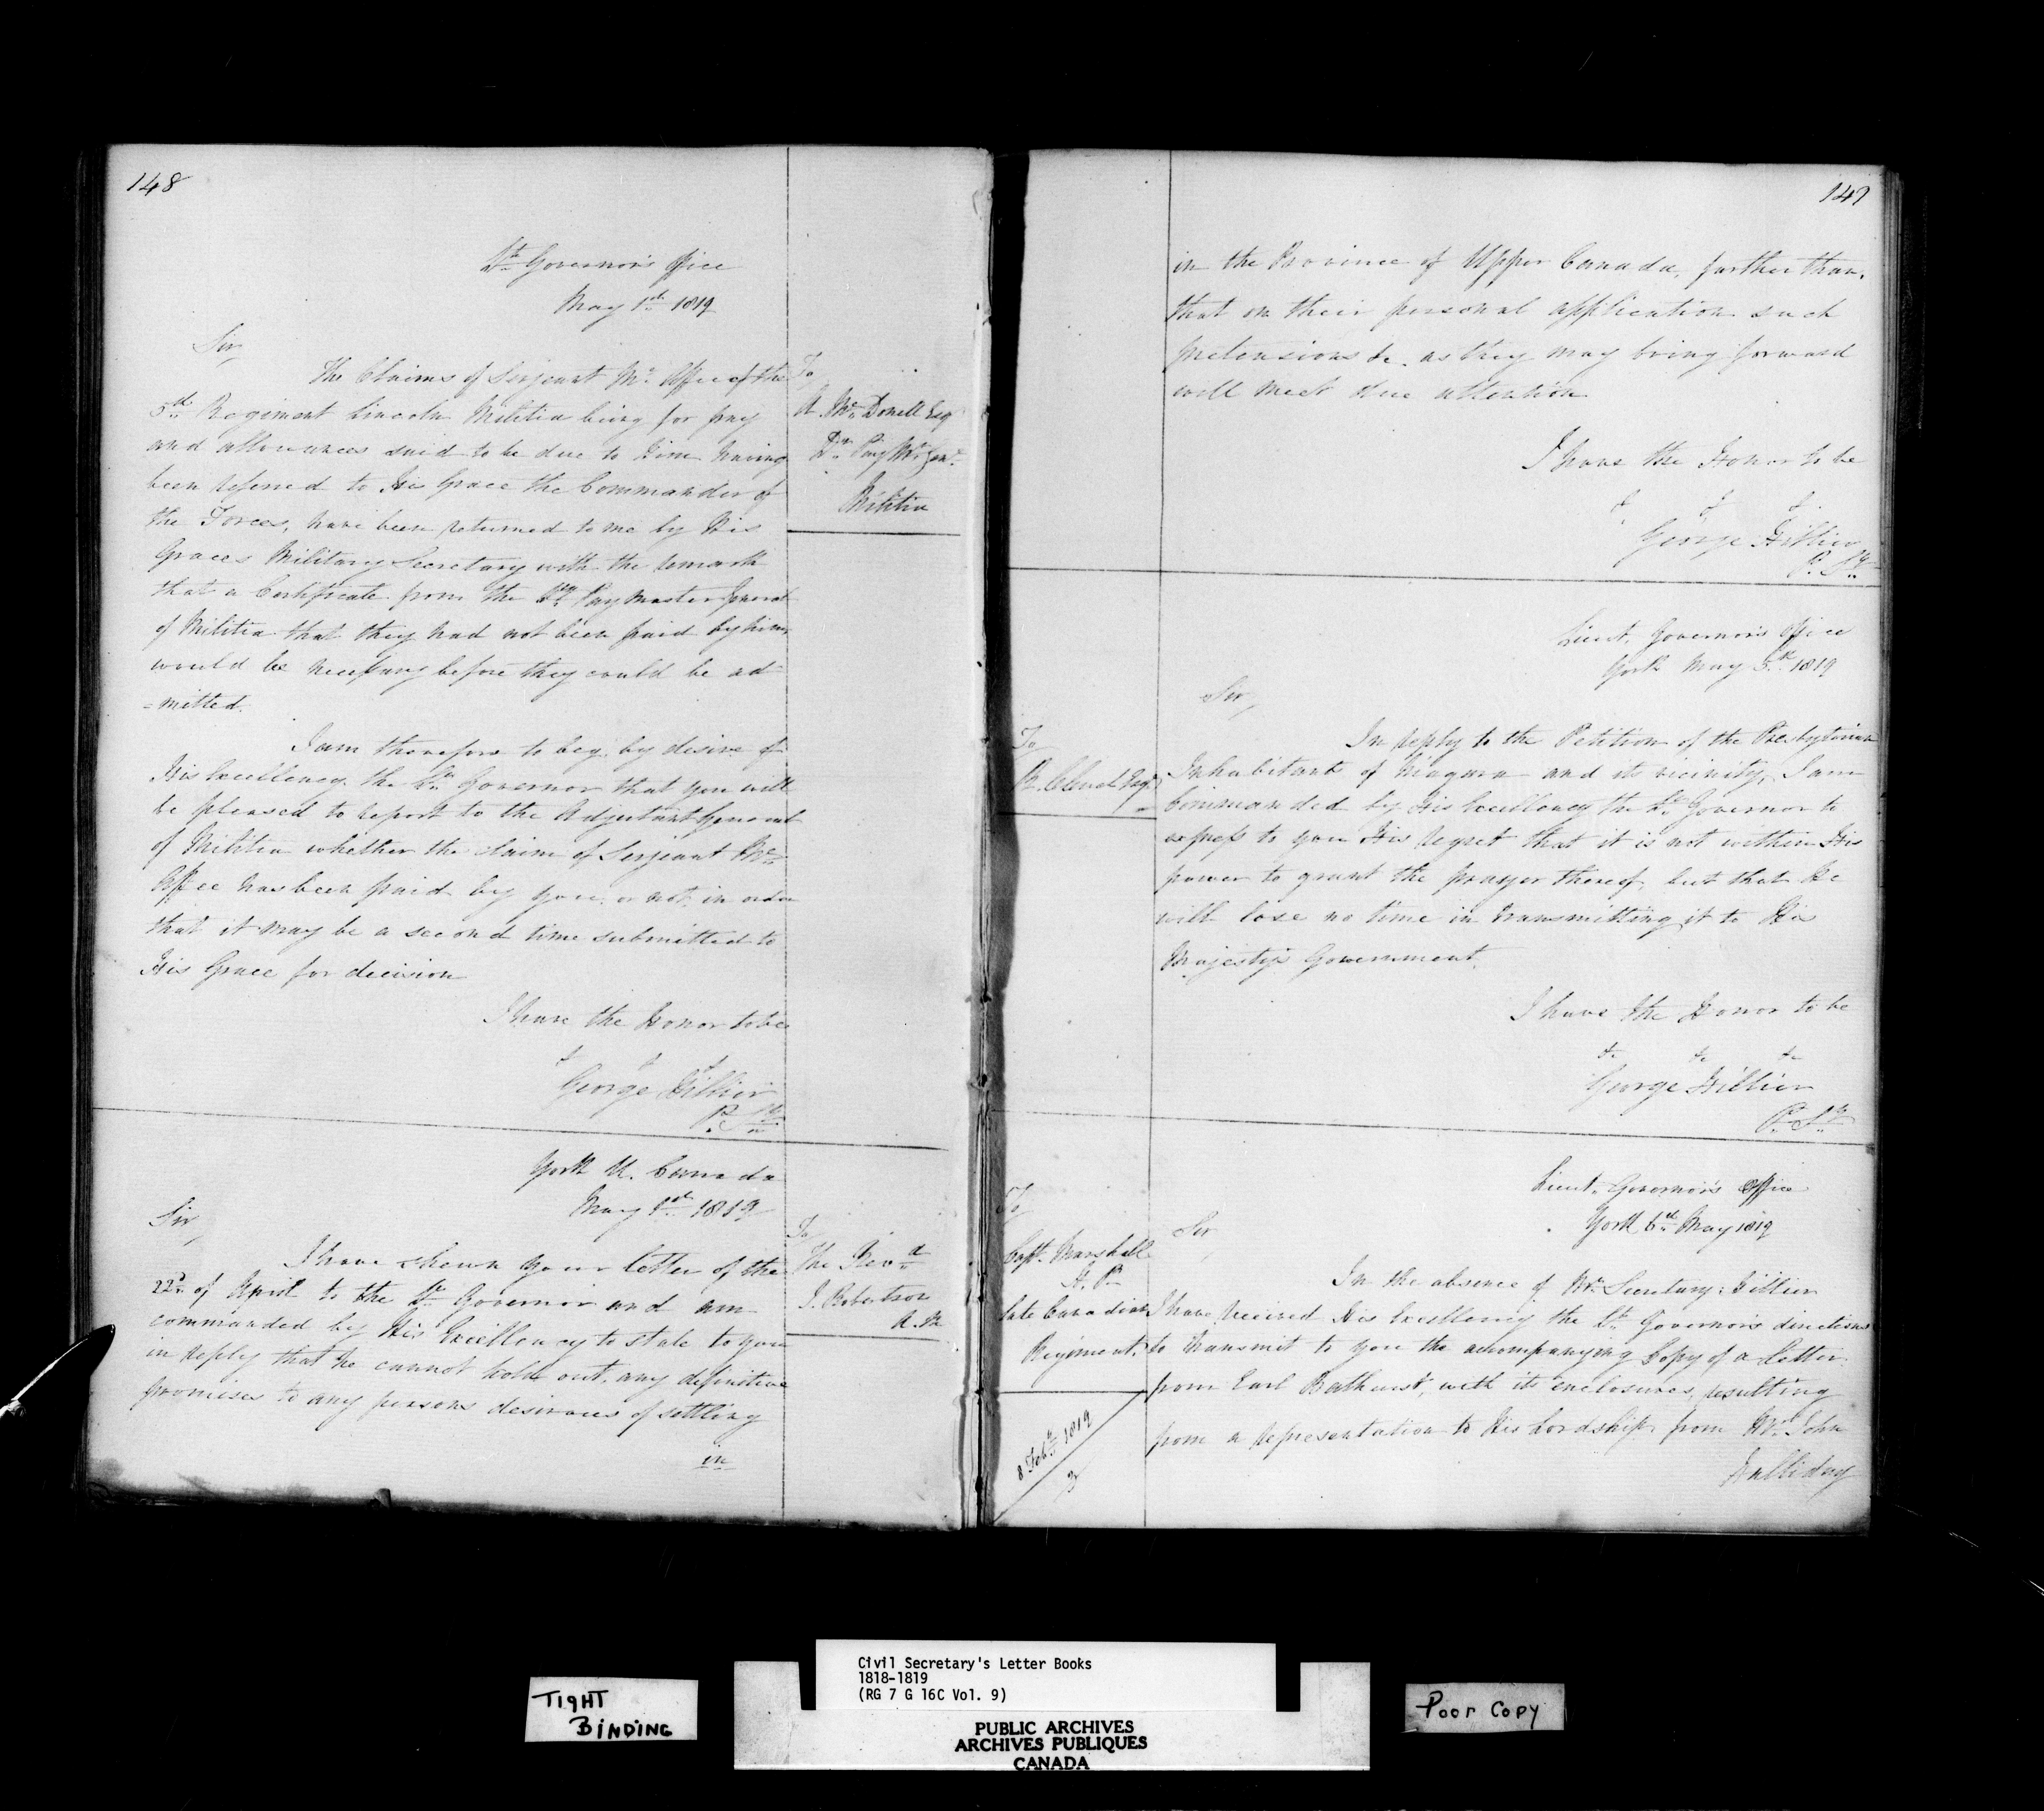 148
Lt. Governor's Office
May 1st 1819
Sir,
The Claims of Serjeant Mc Affee of the
5th Regiment Lincoln Militia being for pay
and allowances said to be due to him having
been referred to His Grace the Commander of
the Forces, have been returned to me by His
Graces Military Secretary with the remark
that a Certificate from the Dy. Pay Master General
of Militia that they had not been paid by him,
would be necessary before they could be ad
=mitted.
I am therefore to beg by desire of
His Excellency the Lt. Governor that you will
be pleased to report to the Adjutant General
of Militia whether the claim of Serjeant Mc
Affee has been paid by you, or not, in order
that it may be a second time submitted to
His Grace for decision
I have the Honor to be
& & &
George Hillier
P. Sy
To
A. Mc Donell Esqr
Dy. Pay Mr Genl
Militia
York U. Canada
May 1st 1819
Sir,
I have shewn your letter of the
22d of April to the Lt. Governor and am
commanded by His Excellency to state to you
in reply that he cannot hold out, any definitive
promises to any persons desirous of settling
in
To
The Revd
J. Robertson
A.M
147
in the Province of Upper Canada, further than,
that on their personal application such
pretensions &c. as they may bring forward
will meet due attention
I have the Honor to be
& & &
George Hillier
P. Sy
Lieut. Governor's Office
York May 5th 1819
Sir,
In reply to the Petition of the Presbyterian
Inhabitants of Niagara and its vicinity, I am
Commanded by His Excellency the Lt. Governor to
express to you His regret that it is not within His
power to grant the prayer thereof, but that he
will lose no time in transmitting it to His
Majesty's Government.
I have the Honor to be
&c &c &c
George Hillier
P. Sy
To
Clench Esqr
Lieut. Governor's Office
York 6th May 1819
Sir
In the absence of Mr. Secretary Hillier
I have received His Excellency the Lt. Governor's directions
to transmit to you the accompanying Copy of a Letter
from Earl Bathurst, with its enclosures, resulting
from a representation to His Lordship from Mr. John
Halliday
To
Capt. Marshall
H. P.
late Canadian
Regiment.
8 Feby 1819
3
TIGHT
BINDING
Civil Secretary's Letter Books
1818-1819
(RG 7 G 16C Vol. 9)
PUBLIC ARCHIVES
ARCHIVES PUBLIQUES
CANADA
Poor Copy